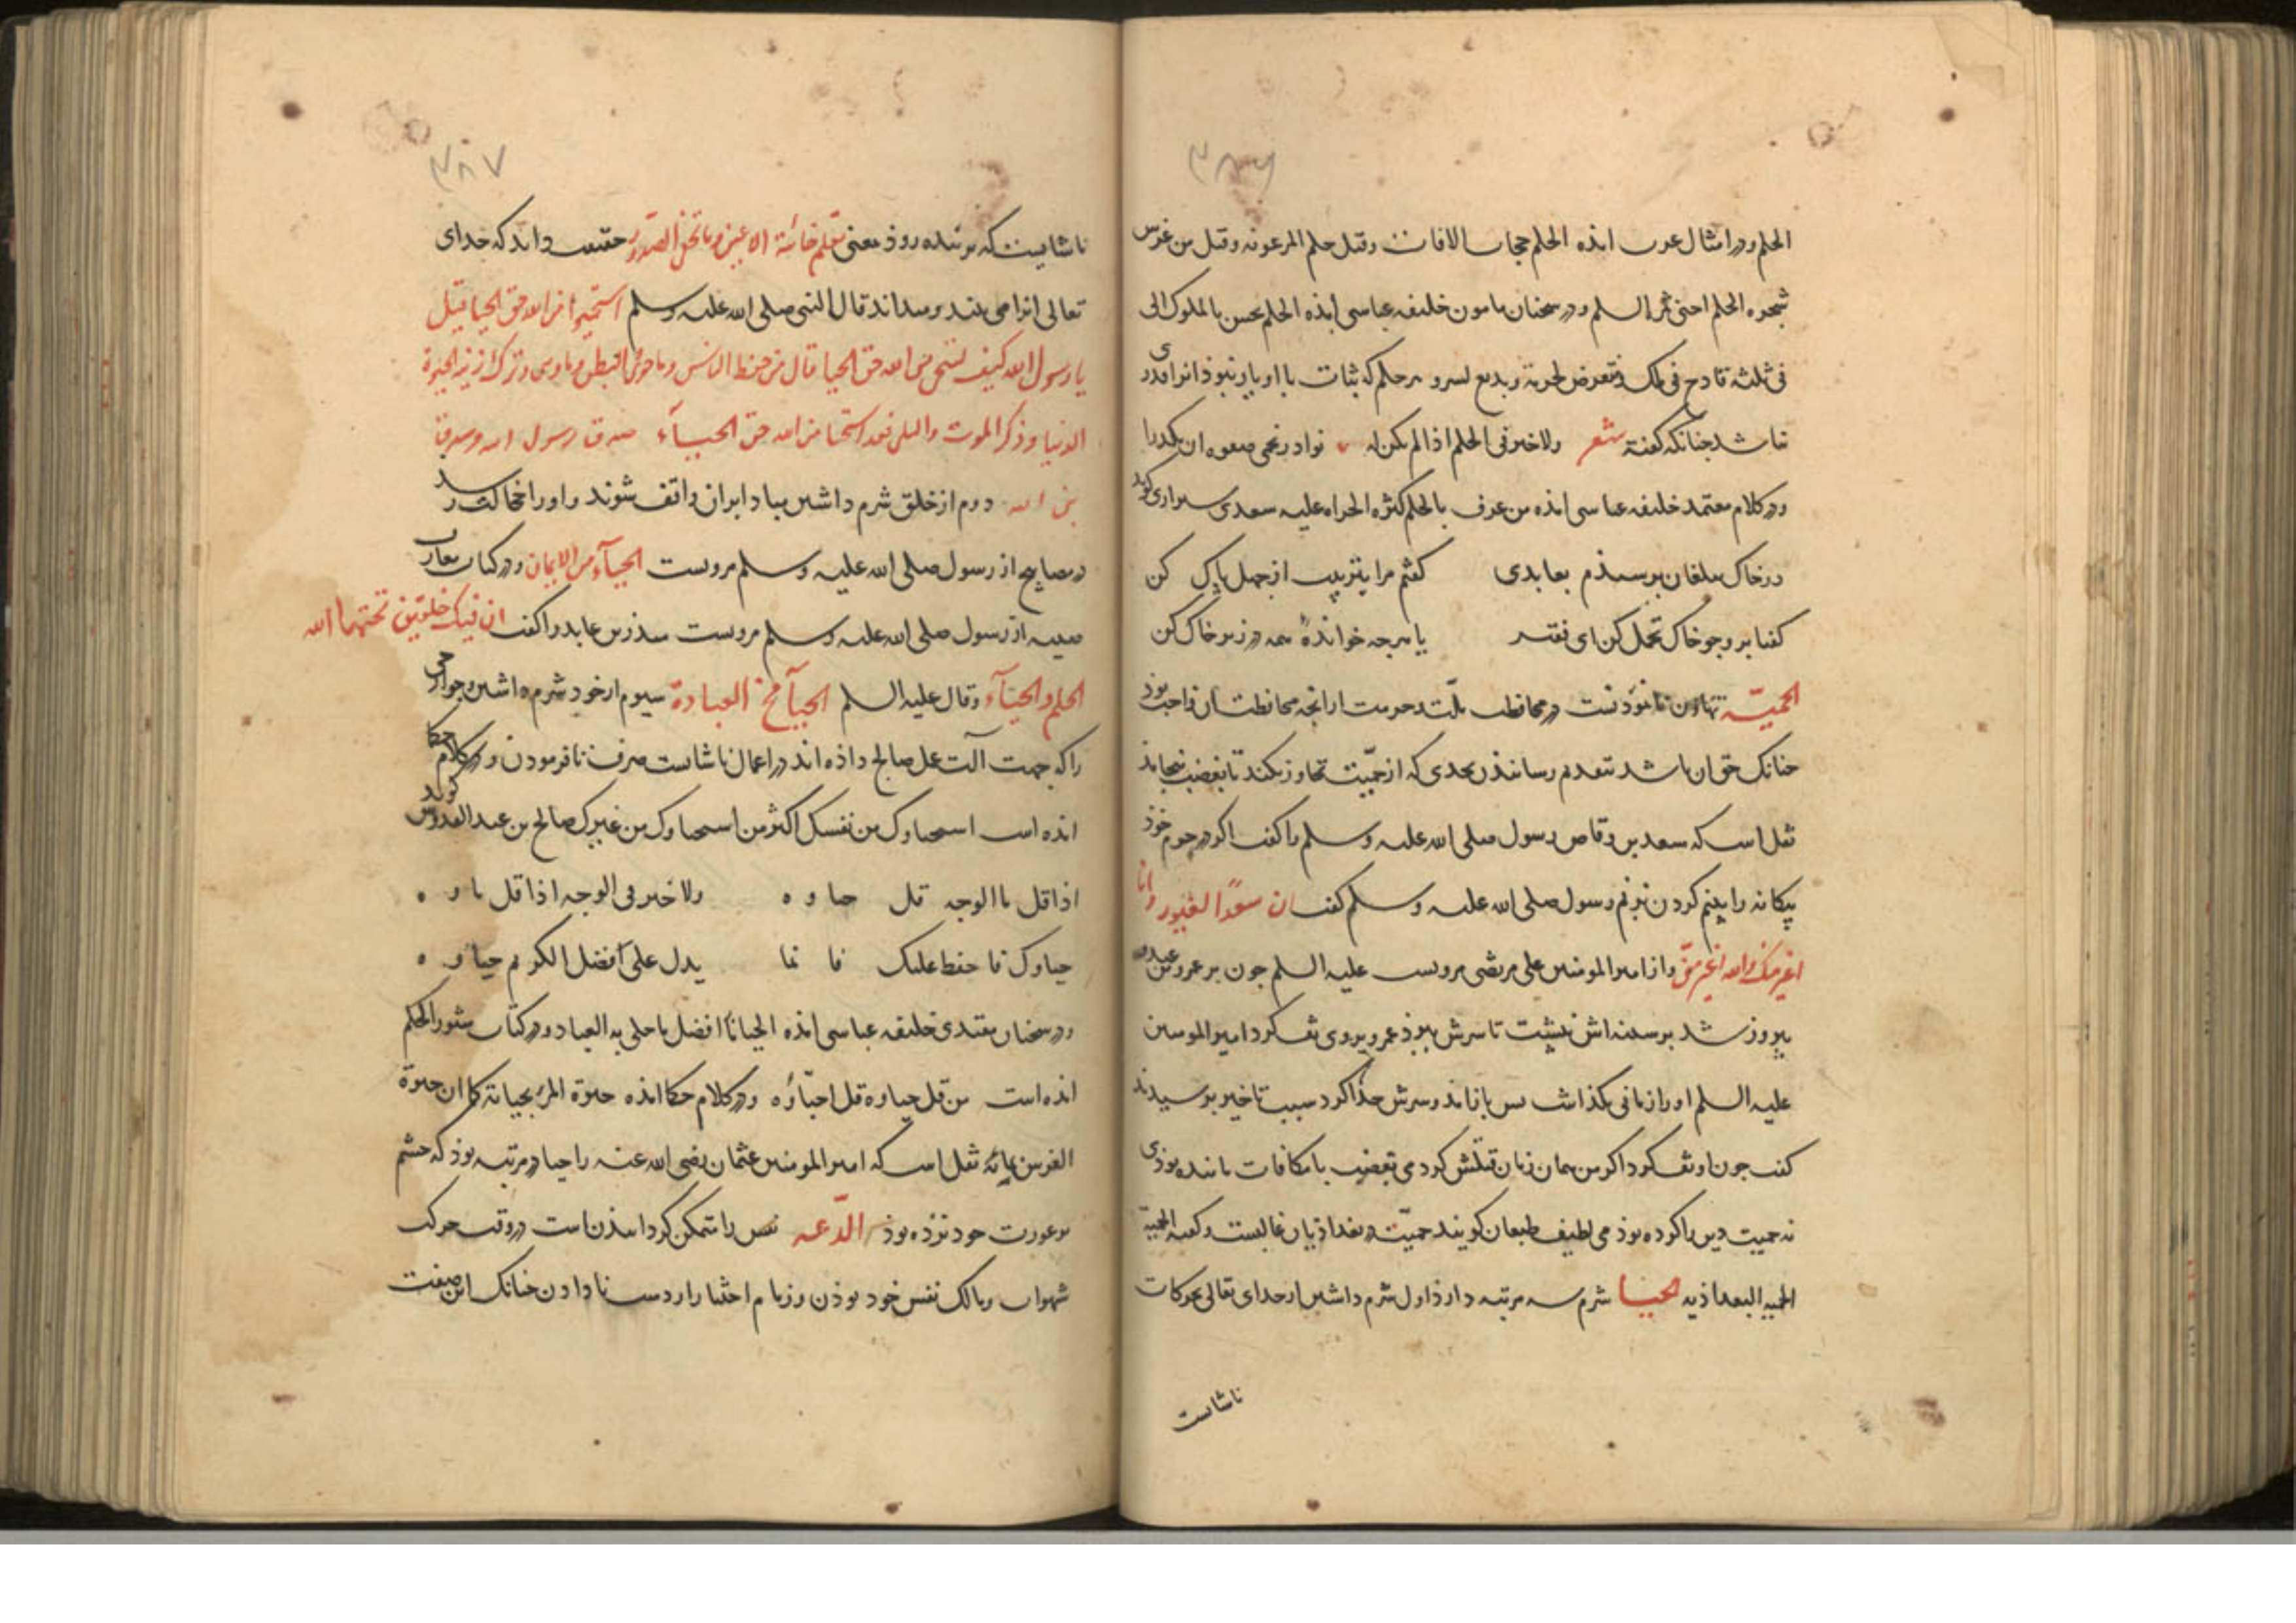 ۳۸۶
الحلم و در امثال عرب امده الحلم حجاب الافات وقیل حلم المرء عونه وقیل من غرس
شجره الحلم اجتنی ثمر السلم و در سخنان مامون خلیفه عباسی امذه الحلم یحسن بالملوک الی
فی ثلثه قادح فی ملک و متعرض لحرمة و مذیع لسر و هر حلم که ثبات با او یار نبوذ انرا قدری
نباشد جنانکه کفته شعر ولا خیر فی الحلم اذا لم یکن له بوادر تحمی صفوه ان یکدرا
و در کلام معتمد خلیفه عباسی امذه من عرف بالحلم کثره الجراه علیه سعدی شیرازی کوید
در خاک بیلقان برسیذم بعابدی کفتم مرا بتربیت از جهل پاک کن
کفتا برو جو خاک تحمل کن ای فقیه یا هرجه خوانده همه در زیر خاک کن
الحمیّه تهاون نانموذنست در محافظت ملّت و حرمت از انجه محافظت آن واجب بوذ
جنانک حق ان باشد بتقدیم رسانیذن بحدی که از حمیّت تجاوز نکند تا بغضب نینجامذ
نقل است که سعد بن وقاص رسول صلی الله علیه وسلم را کفت اکر در حرم خوذ
بیکانه را بینم کردن بزنم رسول صلی الله علیه وسلم کفت ان سعدًا لغیور وانا
اغیر منه والله اغیر منّی و از امیر المومنین علی مرتضی مرویست علیه السلم جون بر عمرو بن عبدود
بیروز شد بر سینه اش نشست تا سرش ببرذ عمرو بروی تف کرد امیر المومنین
علیه السلم او را زمانی بکذاشت بس باز امذ و سرش جذا کرد سبب تاخیر برسیدند
کفت جون او تف کرد اکر من همان زمان قتلش کردمی بغضب یا مکافات مانند بوذی
نه حمیت دین را کرده بوذمی لطیف طبعان کویند حمیّت در بغداذیان غالبست و کفته الحمیة
الحمیه البغداذیه الحیا شرم سه مرتبه دارذ اول شرم داشتن از خدای تعالی بحرکات
ناشایست
۳۸۷
ناشایست که مر بنده روذ یعنی یعلم خائنة الاعین وما تخفی الصّدور حقیقت داند که خدای
تعالی انرا می بیند و میداند قال النبی صلی الله علیه وسلم استحیوا من الله حق الحیا قیل
یا رسول الله کیف نستحی من الله حق الحیا قال من حفظ الراس وما حوی والبطن وما وعی وترک زینة الحیوة
الدنیا وذکر الموت والبلی فقد استحیا من الله حق الحیآء صدق رسول الله وصدق
نبی الله دوم از خلق شرم داشتن مبادا بران واقف شوند و او را خجالت رسد
در مصابیح از رسول صلی الله علیه وسلم مرویست الحیآء من الایمان و در کتاب معارف
از رسول صلی الله علیه وسلم مرویست عابد را کفت ان فیک خلقین تحبهما الله
الحلم والحیآء وقال علیه السلم الحیآ مخ العبادة سیوم از خود شرم داشتن جوارح
را که جهت آلت عمل صالح داذه اند در اعمال ناشایست صرف نافرمودن و در کلام حکما
امذه است استحیاوک من نفسک اکثر من استحیاوک من غیرک صالح بن عبد القدوس کوید
اذا قل ماء الوجه قل حیاوه ولا خیر فی الوجه اذا قل ماوه
حیاوک فاحفظه علیک فانما یدل علی افضل الکریم حیاوه
و در سخنان مقتدی خلیفه عباسی امذه الحیا افضل ما حلی به العباد و در کتاب منثور الحکم
امذه است من قل حیاوه قل احبّاؤه و در کلام حکما امذه حیوة المرء بحیائه کما ان حیوة
الغرس بمائه نقل است که امیر المومنین عثمان رضی الله عنه را حیا در مرتبه بوذ که جشم
بر عورت خود نزده بوذ الدّعه نفس را متمکن کردانیذن است در وقت حرکت
شهوات و مالک نفس خود بوذن و زمام اختیار از دست نادادن جنانک این صفت